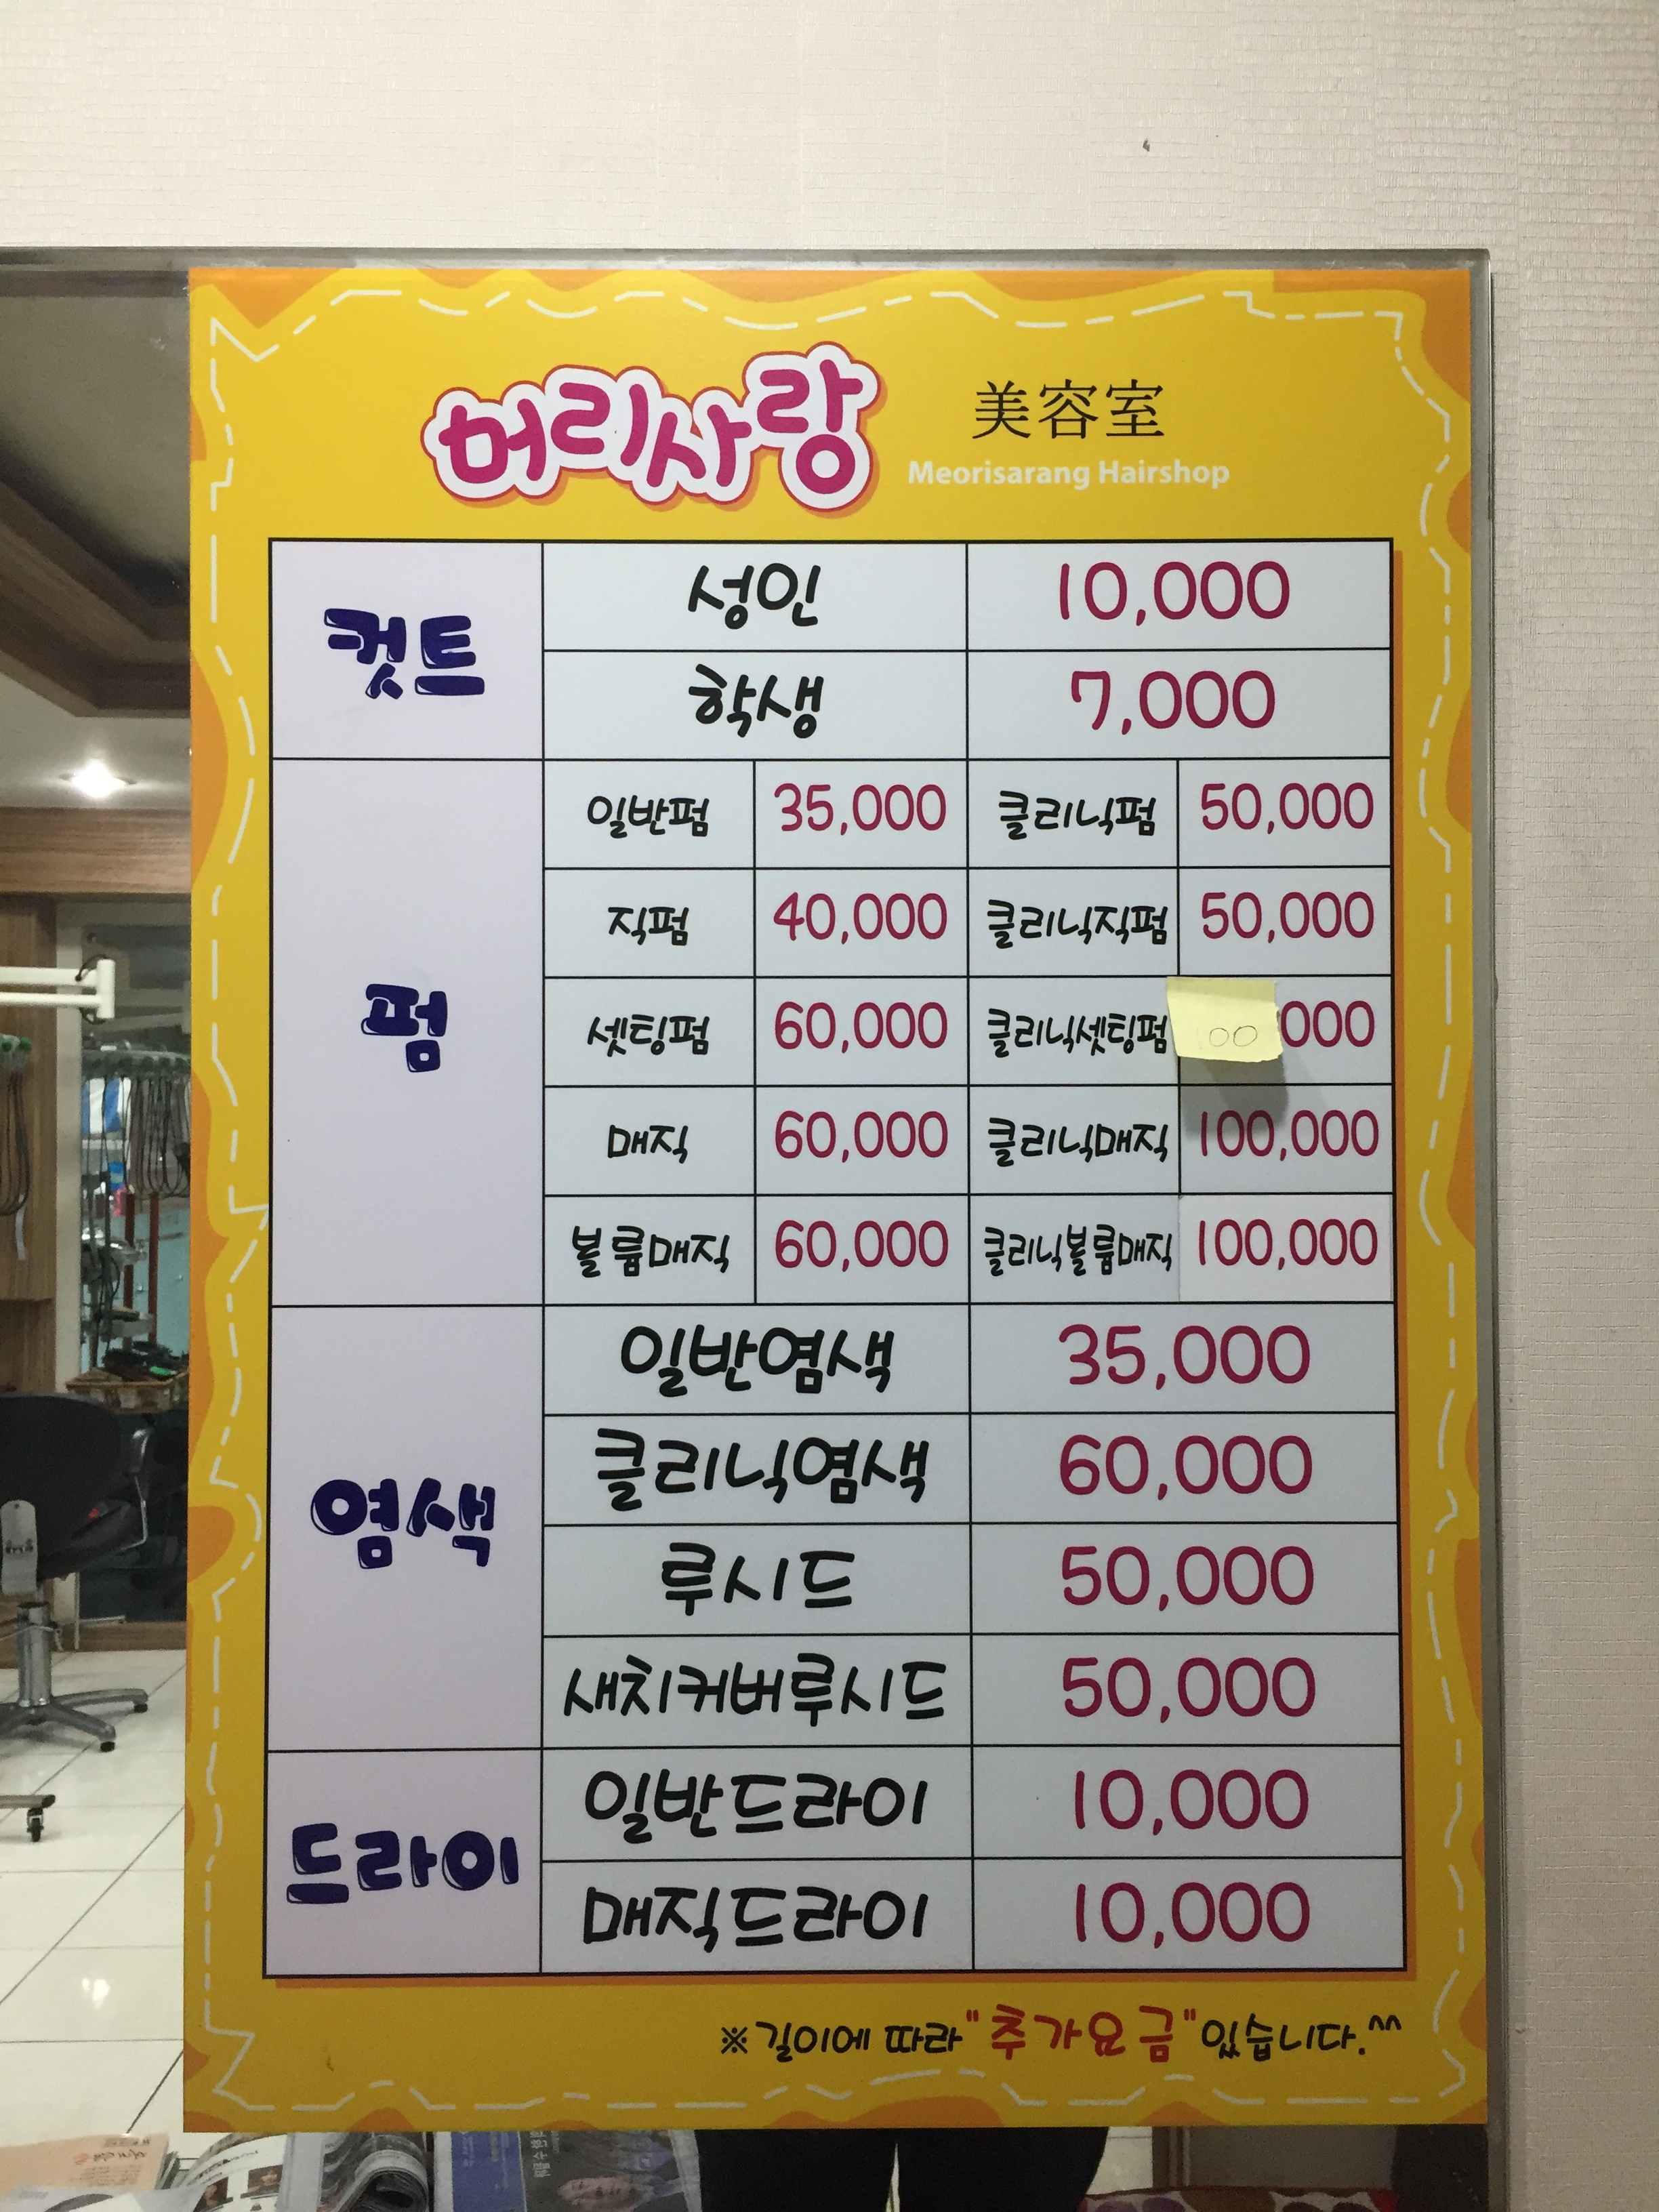 머리사랑 美容室
Meorisarang Hairshop
컷트 성인 10,000
학생 7,000
펌 일반펌 35,000 클리닉펌 50,000
직펌 40,000 클리닉직펌 50,000
셋팅펌 60,000 클리닉셋팅펌 100 000
매직 60,000 클리닉매직 100,000
볼륨매직 60,000 클리닉볼륨매직 100,000
염색 일반염색 35,000
클리닉염색 60,000
루시드 50,000
새치커버루시드 50,000
드라이 일반드라이 10,000
매직드라이 10,000
※길이에 따라 "추가요금" 있습니다.^^